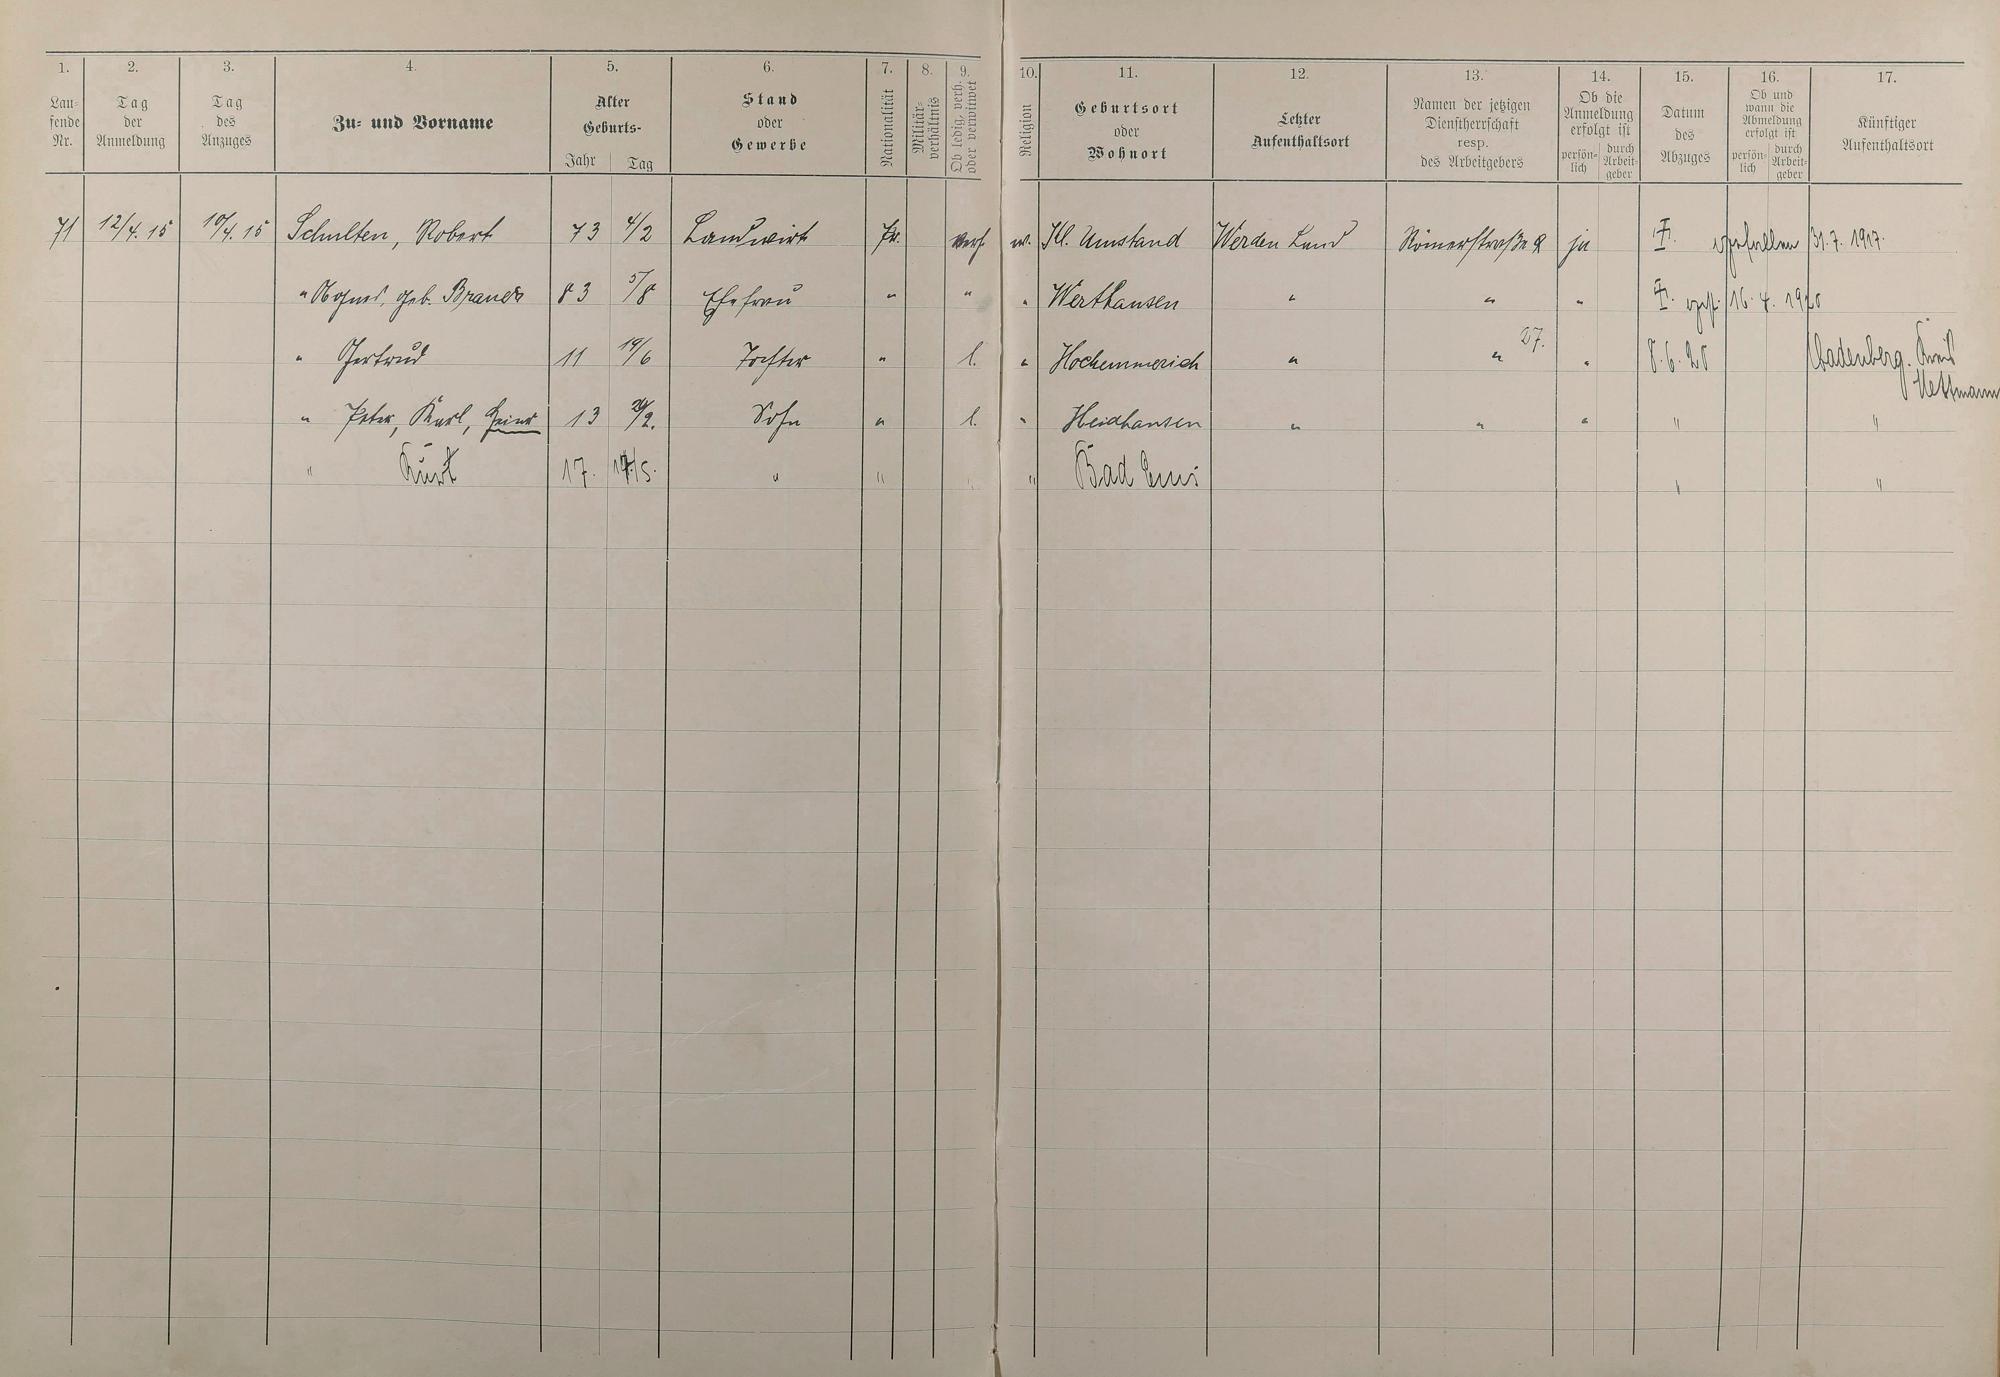 1. 2. 3. 4. 5. 6. 7. 8. 9. 10. 11. 12. 13. 14. 15. 16. 17.
Lau-
fende
Nr.
Tag
der
Anmeldung
Tag
des
Anzuges
Zu- und Vorname
Alter
Geburts-
Jahr Tag
Stand
oder
Gewerbe
Nationalität
Militär-
verhältnis
Ob ledig, verh.
oder verwitwet
Religion
Geburtsort
oder
Wohnort
Letzter
Aufenthaltsort
Namen der jetzigen
Dienstherrschaft
resp.
des Arbeitgebers
Ob die
Anmeldung
erfolgt ist
persön-
lich
durch
Arbeit-
geber
Datum
des
Abzuges
Ob und
wann die
Abmeldung
erfolgt ist
persön-
lich
durch
Arbeit-
geber
Künftiger
Aufenthaltsort
71 12/4. 15 10/4. 15 Schulten, Robert 73 4/2 Landwirt Pr. verh. Kl. Umstand Werden Land Römerstraße ja 31. 7. 1917.
" Agnes, geb. 83 5/8 Ehefrau " " " Werthausen " " " 16. 4. 1920
" Gertrud 11 19/6 Tochter " l. " Hochemmerich " " 27. " 8. 6. 20 Kreis
Mettmann
" Peter, Karl, Heinr 13 /2. Sohn " l. " Heidhausen " " " " "
" Kurt 17. /5. " " " " Bad Ems " "